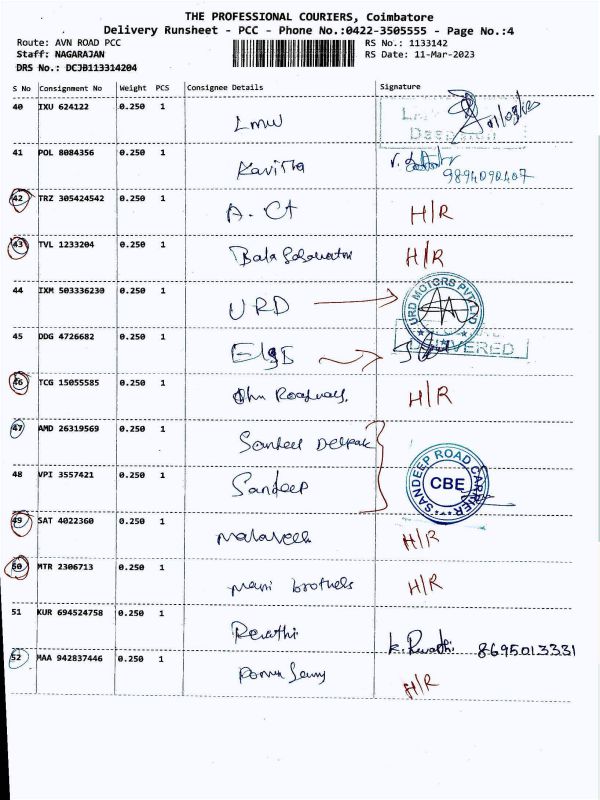 THE PROFESSIONAL COURIERS, Coimbatore
Delivery Runsheet - PCC - Phone No.:0422-3505555 - Page No.:4
Route: AVN ROAD PCC RS No.: 1133142
Staff: NAGARAJAN RS Date: 11-Mar-2023
DRS No.: DCJB113314204
S No Consignment No Weight PCS Consignee Details Signature
40 IXU 624122 0.250 1 LMW
41 POL 8084356 0.250 1 Kavitha 9894090407
42 TRZ 305424542 0.250 1 A. Ct H/R
43 TVL 1233204 0.250 1 Bala H/R
44 IXM 503336230 0.250 1 URD URD MOTORS PVT LTD
45 DDG 4726682 0.250 1 Elgi DELIVERED
46 TCG 15055585 0.250 1 H/R
47 AMD 26319569 0.250 1 Sandeep
48 VPI 3557421 0.250 1 Sandeep SANDEEP ROAD CARRIER CBE
49 SAT 4022360 0.250 1 H/R
50 MTR 2306713 0.250 1 Mani brothers H/R
51 KUR 694524758 0.250 1 Revathi K. Revathi 8695013331
52 MAA 942837446 0.250 1 H/R